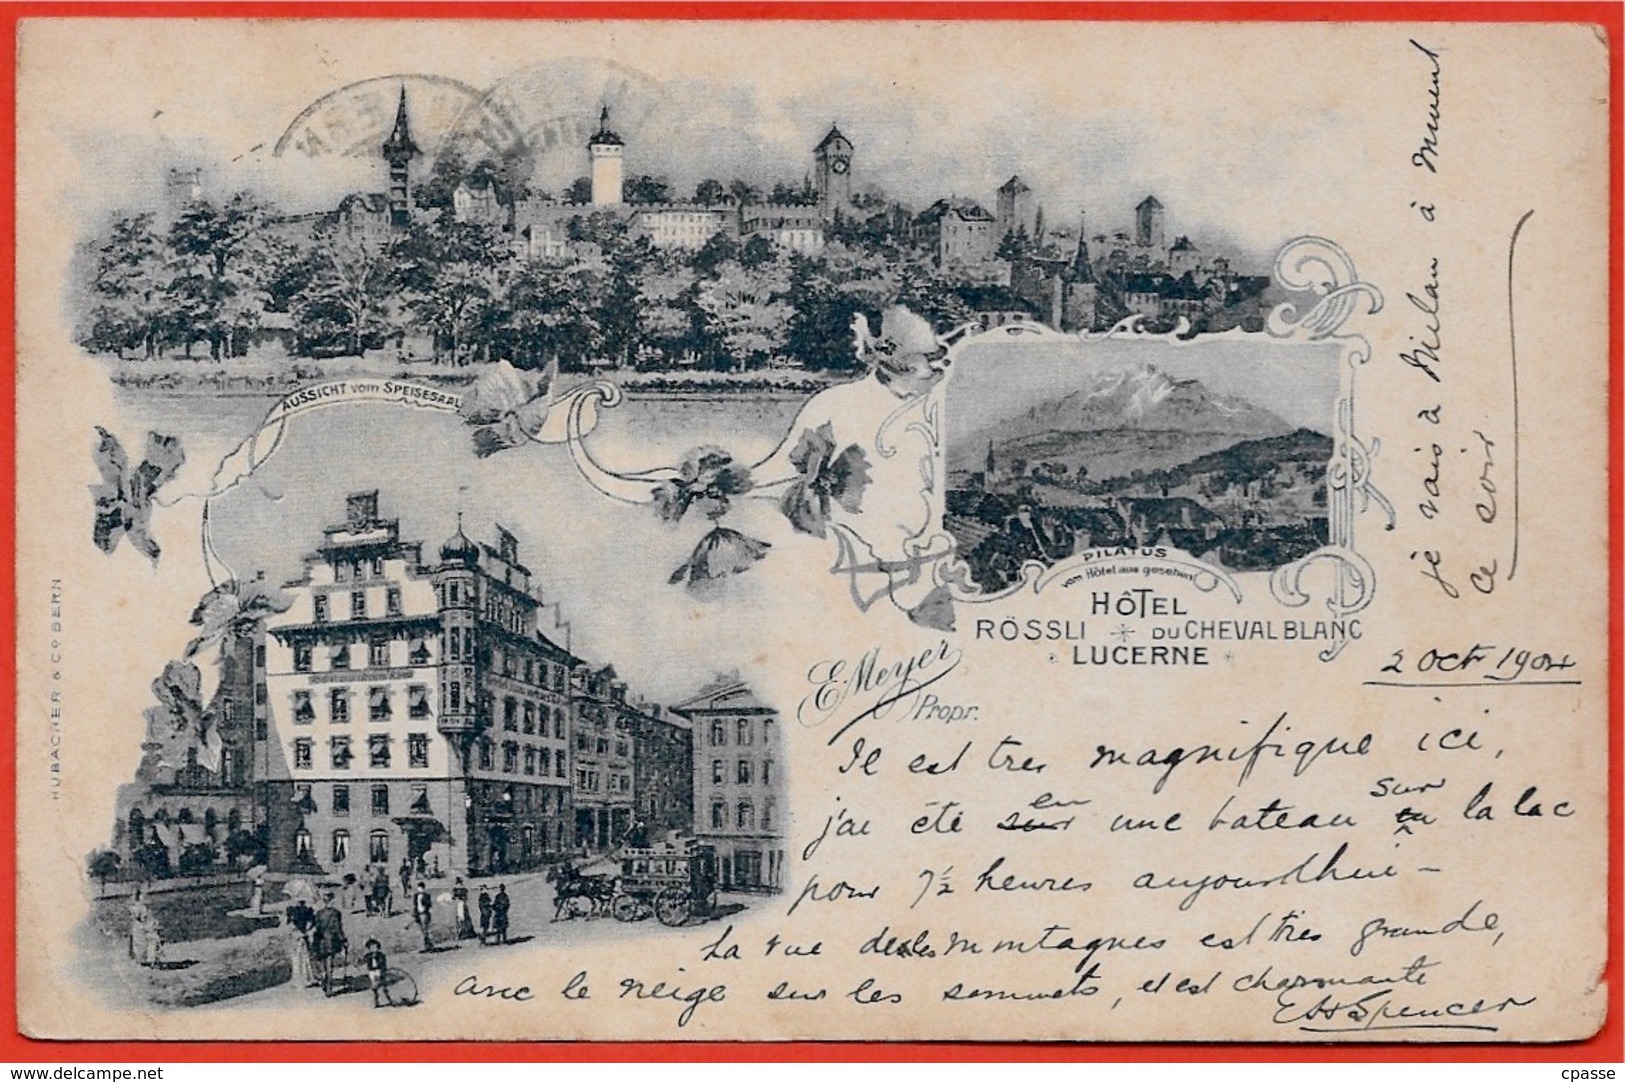 AUSSICHT vom SPEISESAAL
PILATUS
vom Hôtel aus gesehen
HÔTEL
RÖSSLI * DU CHEVAL BLANC
* LUCERNE *
E. Meyer
Propr.
HUBACHER & Cº BERN
2 Oct 1904
Il est tres magnifique ici,
j'ai été en une bateau sur la lac
pour 7½ heures aujourdhui –
La vue des montagnes est très grande,
avec le neige sur les sommets, et est charmante
Spencer
je vais à Milan à
ce soir
delcampe.net
cpasse